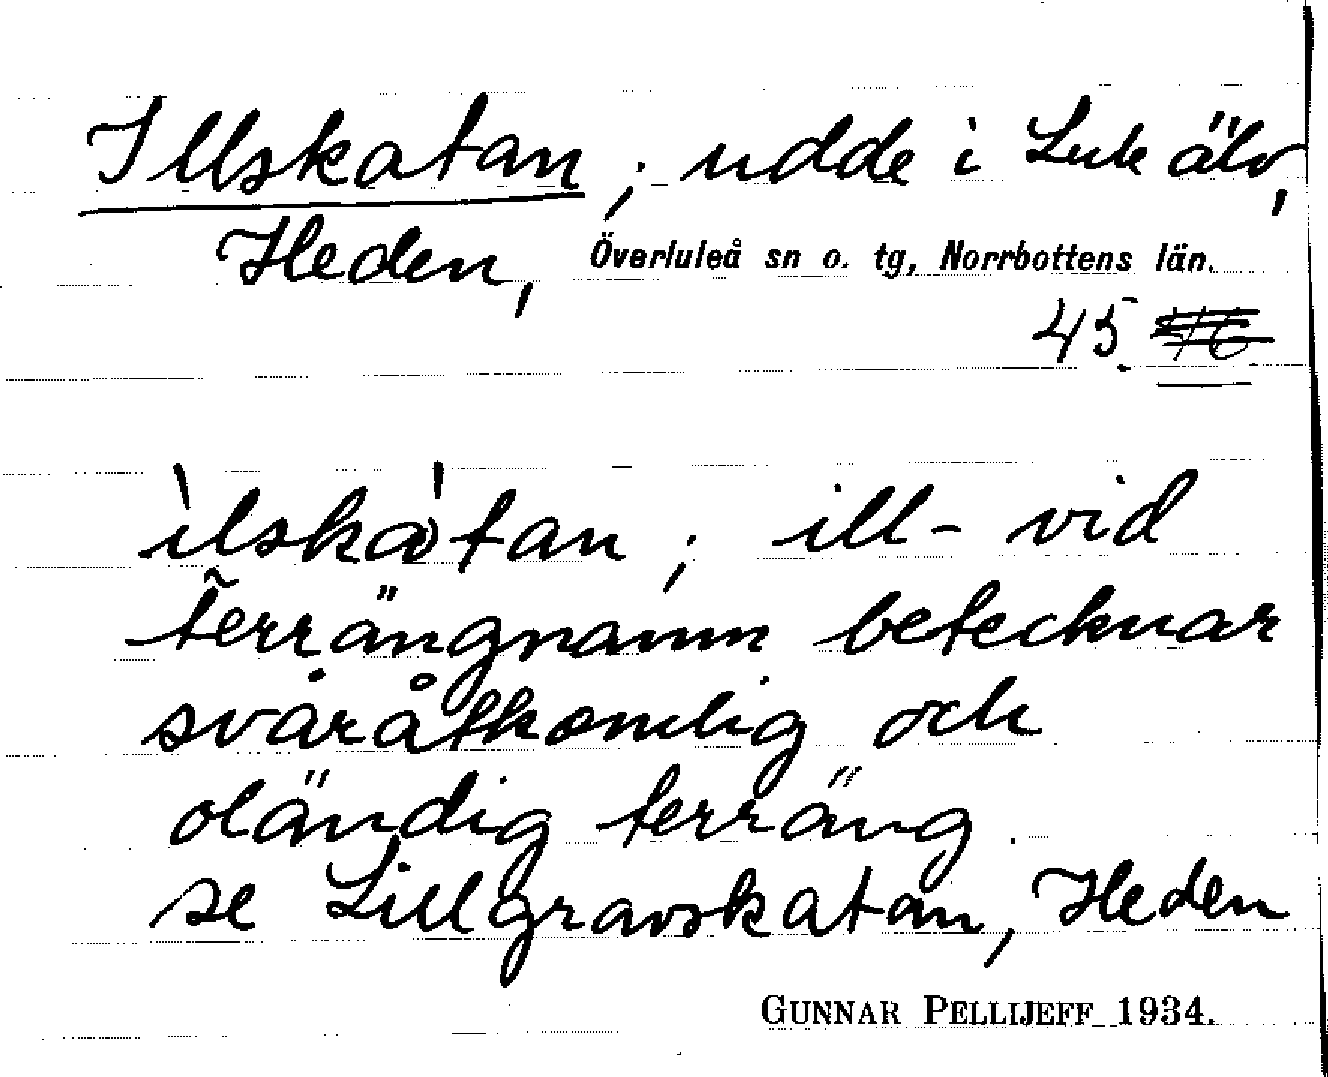 Illskatan; udde i Lule älv,
Heden, Överluleå sn o. tg, Norrbottens län.
45
ìlskátan; ill- vid
terrängnamn betecknar
svåråtkomlig och
oländig terräng.
se Lillgravskatan, Heden
GUNNAR PELLIJEFF 1934.